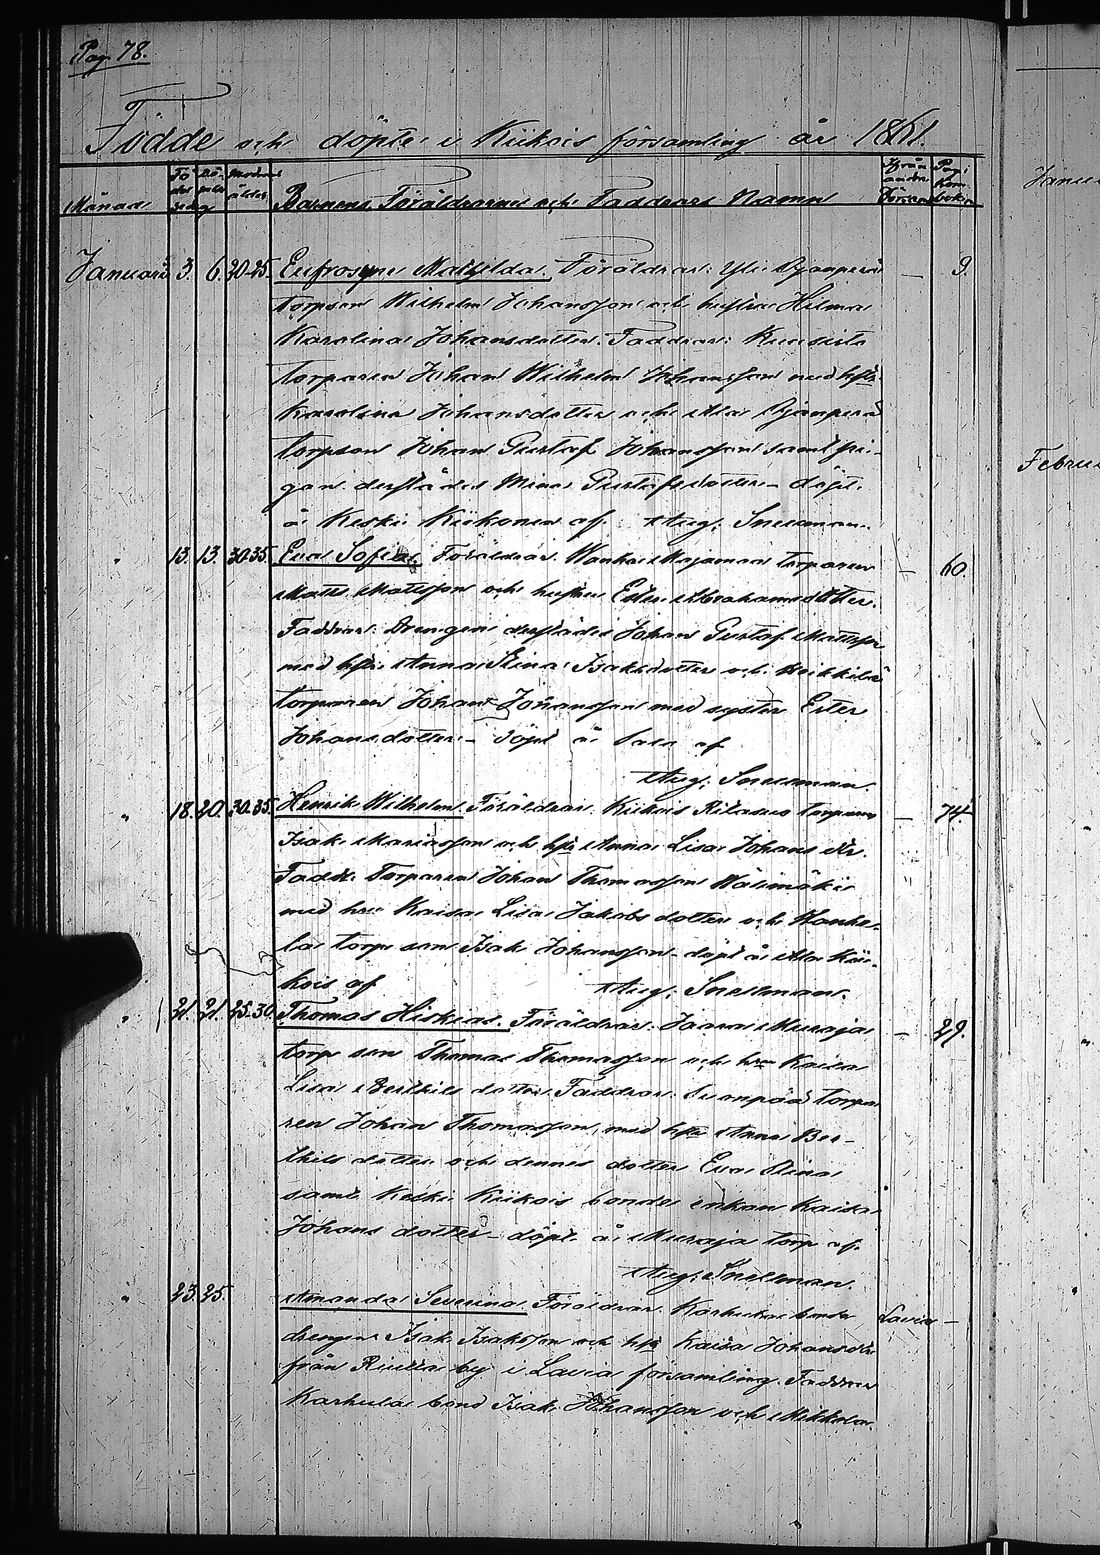 Pag 78.
Födde och döpte i Kikois församling år 1861.
Månad Fö- Dö- Moderns Barnens, Föräldrarnes och Faddrars Namn Ifrån andra Försam. Pag i kom. bok.
Januari 3. 6. 20-25. Eufrosyne Mathilda. Föräldrar: Yli
torpson Wilhelm Johansson och hustru Hilma
Karolina Johansdotter. Faddrar:
torparen Johan Wilhelm Johansson med hstr.
Karolina Johansdotter och Ala
torpson Johan Gustaf Johansson samt pi-
gan derstädes Mina Gustafsdotter - döpt
å Keski Kikonen af Aug. Snellman.
" 13. 13. 30-35. Eva Sofia. Föräldrar. torparen
Matts Mattsson och hustru Ester Abrahamsdotter.
Faddrar: Drengen derstädes Johan Gustaf Mattsson
med hstr Anna Stina Isaksdotter och Heikkilä
torparen Johan Johansson med syster Ester
Johansdotter - döpt å af
Aug. Snellman.
" 18. 20. 30-35. Henrik Wilhelm. Föräldrar. Kikois torparen
Isak och hstr Anna Lisa Johans dr.
Fadd. Torparen Johan Thomasson Wälimäki
med hru Kaisa Lisa Jakobs dotter och Wanhe-
la torp son Isak Johansson - döpt å Ala Kii-
kois af Aug. Snellman.
" 21. 21. 25-30. Thomas Hiskias. Föräldrar. Muraja
torp son Thomas Thomasson och hru Kaisa
Lisa Berthils dotter. Faddrar. torpa-
ren Johan Thomasson med hstr Anna Ber-
thils dotter och dennes dotter Eva Stina
samt Keski Kikois bonde enkan Kaisa
Johans dotter - döpt å Muraja torp af
Aug. Snellman.
" 23. 25. Amanda Severina. Föräldrar. Karhula bonde Lavia -
drengen Isak Isaksson och hstr Kaisa Johansdr
från Riutta by i Lavia församling. Faddrar
Karhula bond Isak Johansson och Mikkola
9.
60.
74.
29.
Januari
Februari